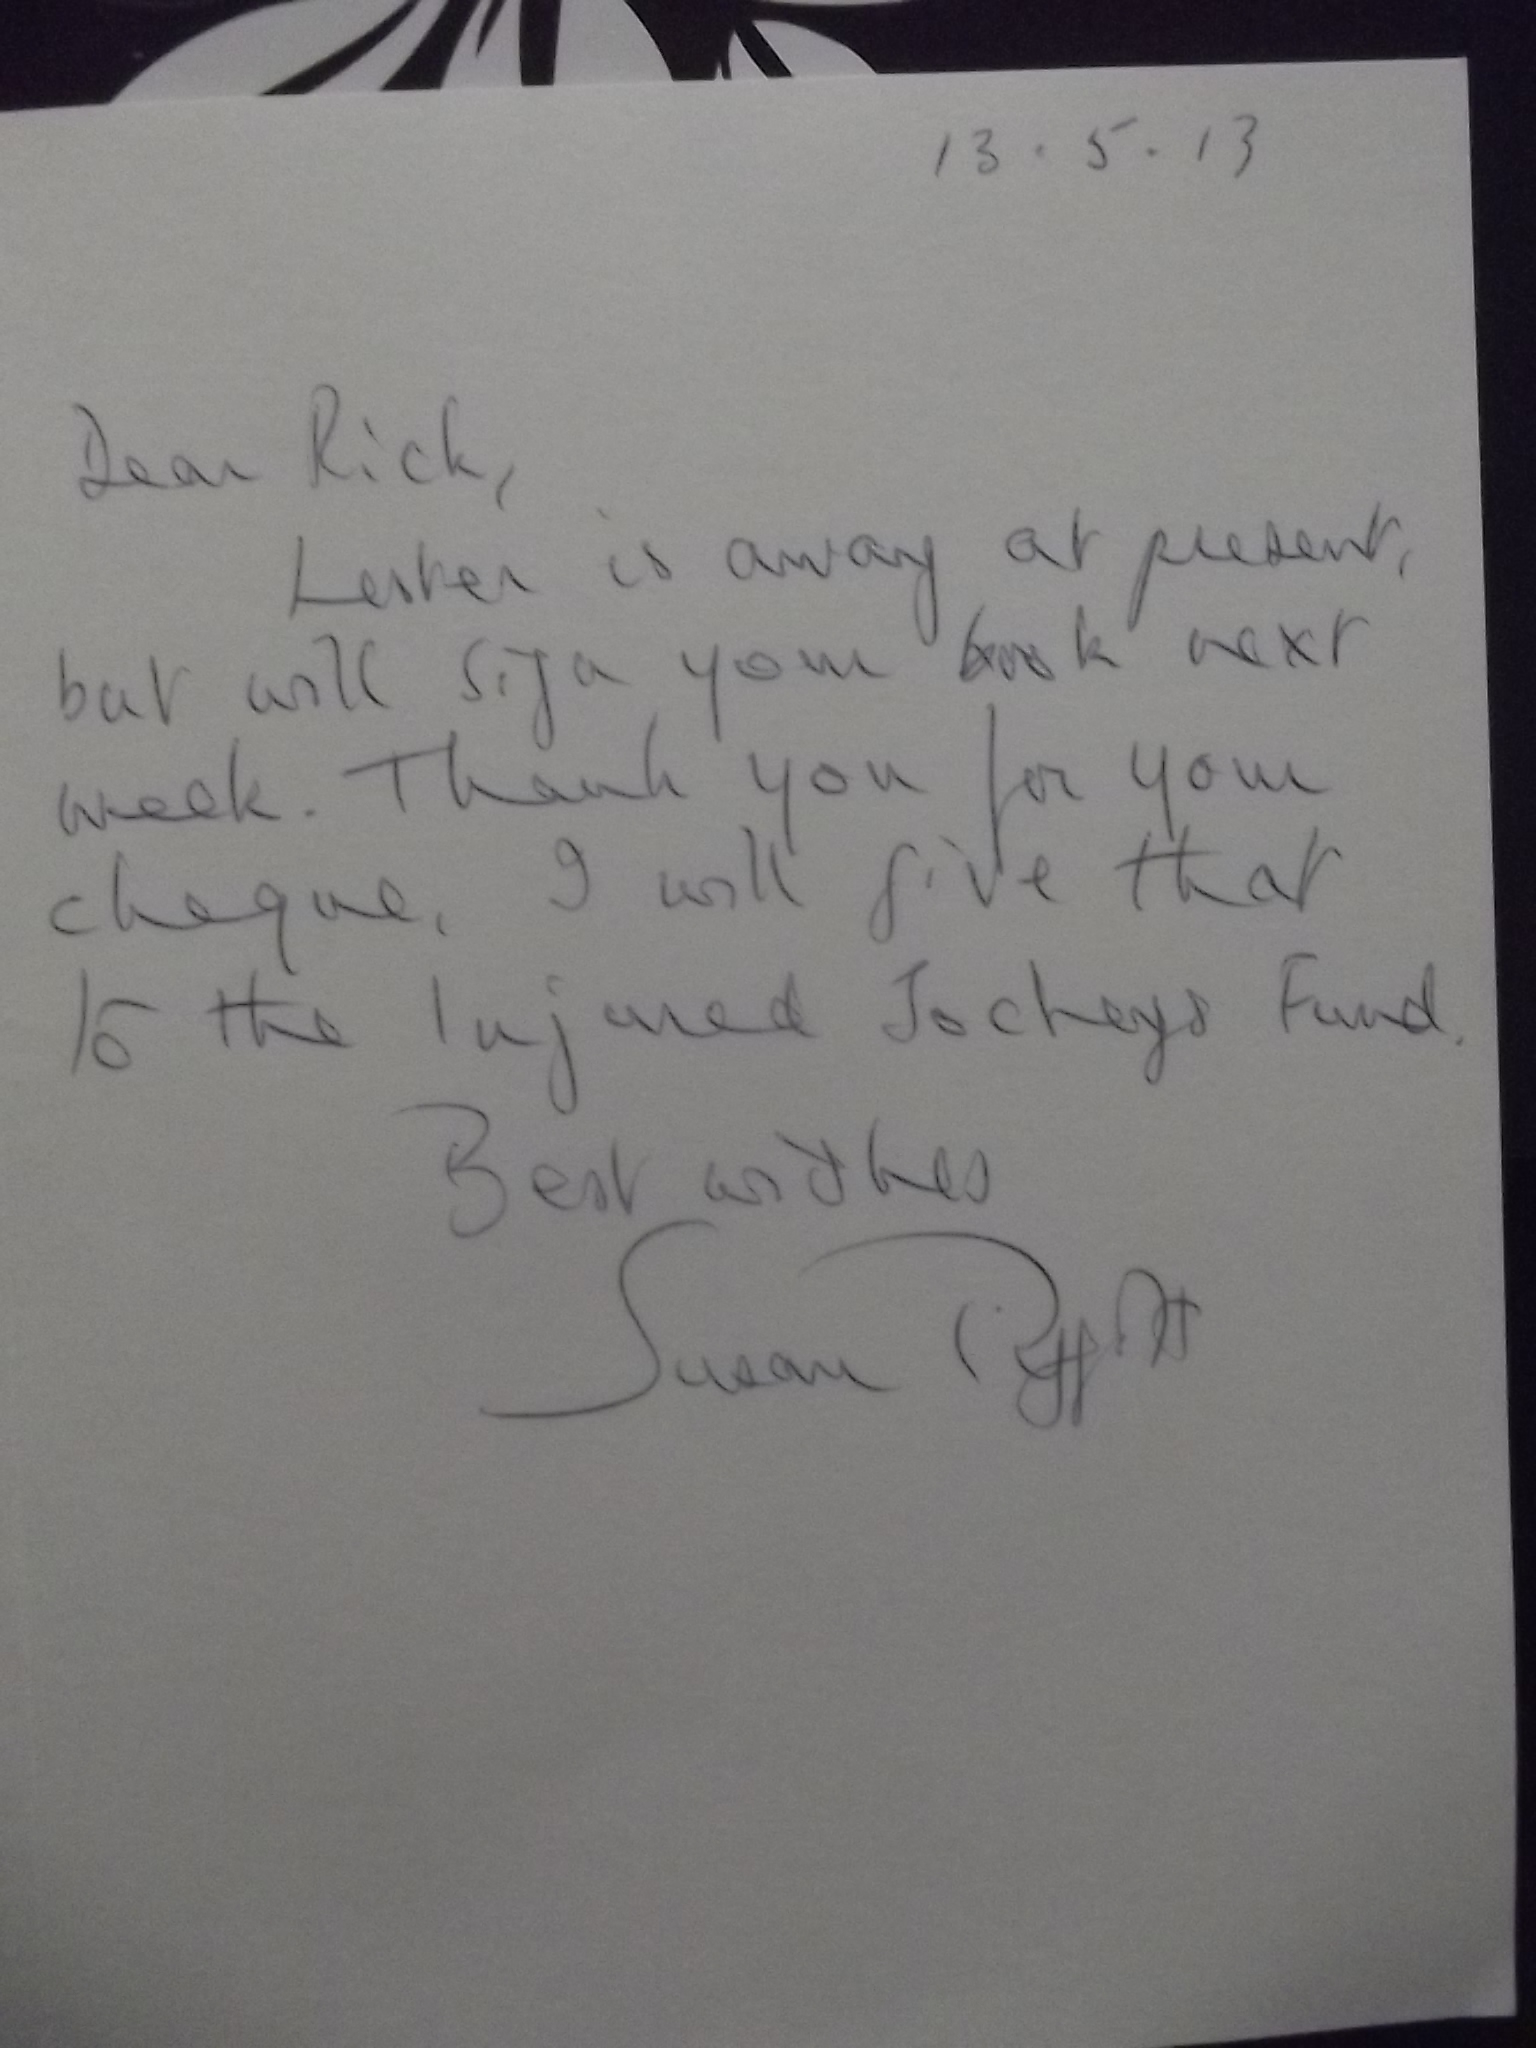 13.5.13
Dear Rick,
Lester is away at present,
but will sign your book next
week. Thank you for your
cheque, I will give that
to the Injured Jockeys Fund.
Best wishes
Susan Piggott